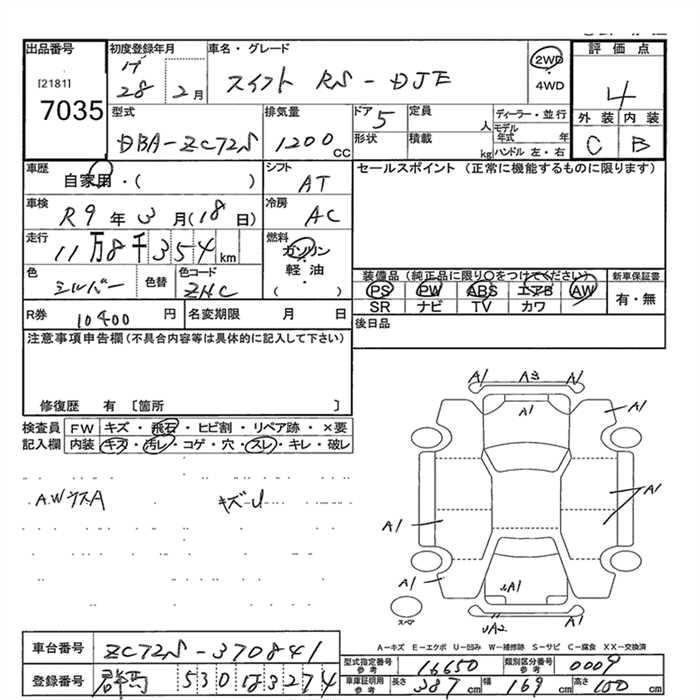 出品番号 初度登録年月 車名・グレード 評価点
[2181] 28 2月 スイフト RS-DJE 2WD・4WD 4
7035 型式 排気量 ドア 5 定員 人 ディーラー・並行 外装 内装
DBA-ZC72S 1200CC 形状 積載 kg モデル年式 年 ハンドル 左・右 C B
車歴 自家用・( ) シフト AT セールスポイント (正常に機能するものに限ります)
車検 R9年3月(18日) 冷房 AC
走行 11万8千354km 燃料 ガソリン・軽油・( )
色 シルバー 色替 色コード ZHC 装備品 (純正品に限り○をつけてください) 新車保証書
PS PW ABS エアB AW 有・無
SR ナビ TV カワ
R券 10400円 名変期限 月 日 後日品
注意事項申告欄 (不具合内容等は具体的に記入して下さい)
修復歴 有 [箇所 ]
検査員 FW キズ・飛石・ヒビ割・リペア跡・×要
記入欄 内装 キズ・汚レ・コゲ・穴・スレ・キレ・破レ
A.W キズA キズーU
A1 A3 A1
A1 A1
A1 A1
A1 A1
スペア UA2 A1
A-キズ E-エクボ U-凹み W-補修跡 S-サビ C-腐食 XX-交換済
車台番号 ZC72S-370841
型式指定番号 参考 16650 類別区分番号 参考 0009
登録番号 群馬 530 は 3274
車庫証明用 参考 長さ 387cm 幅 169cm 高さ 150cm